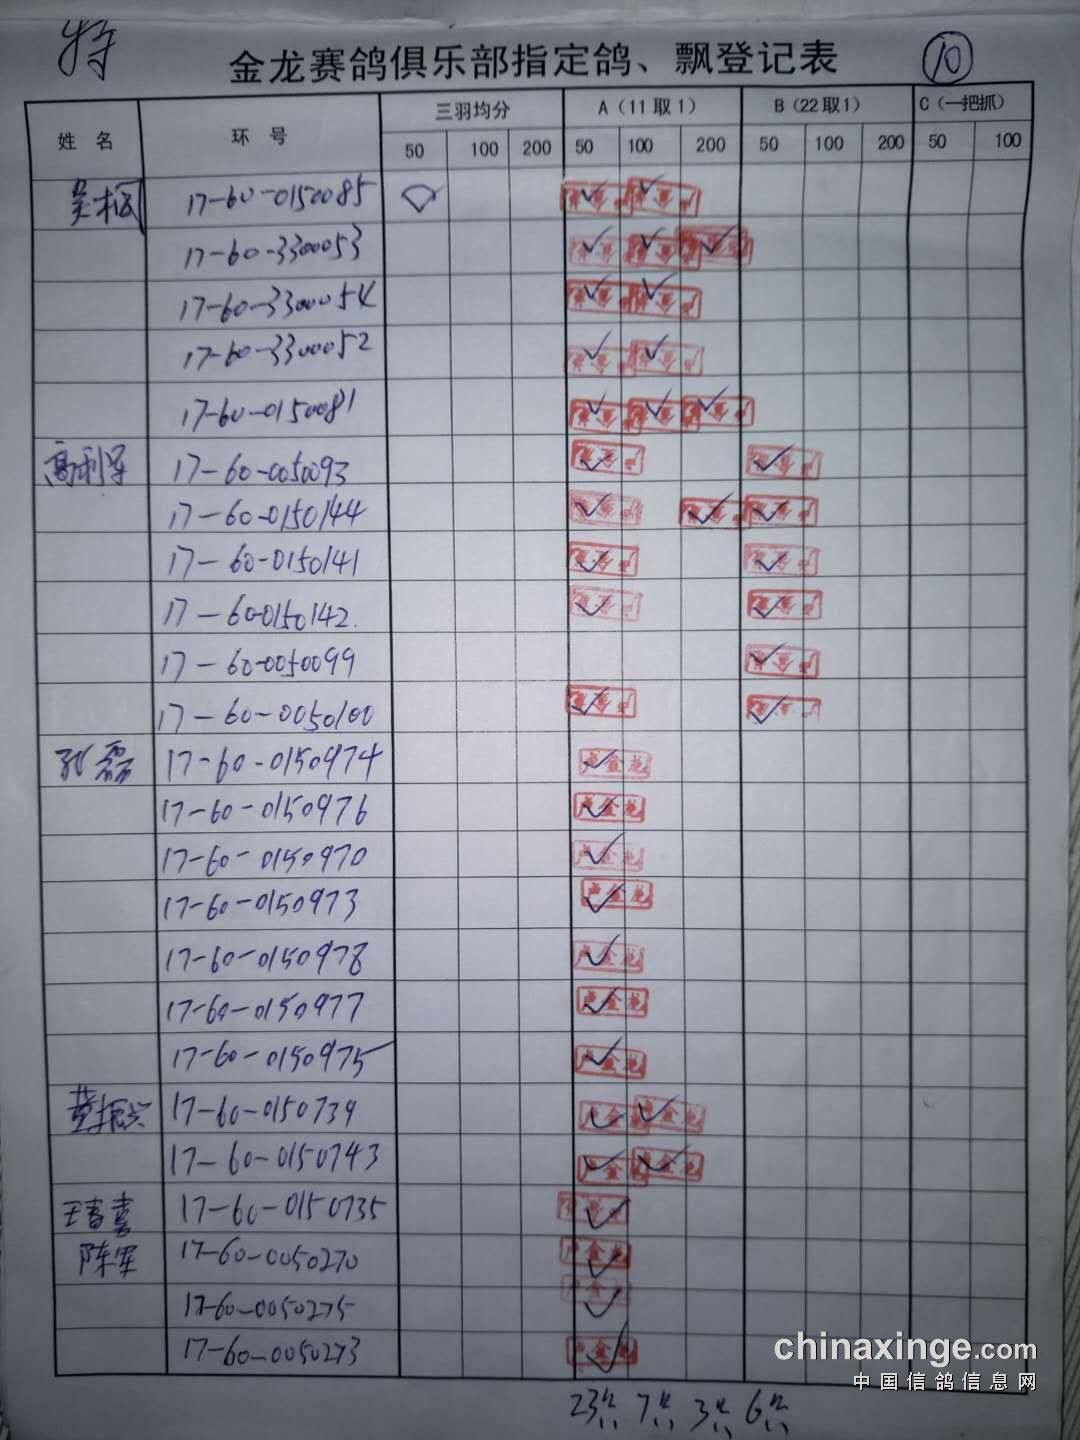 特
金龙赛鸽俱乐部指定鸽、飘登记表 10
姓 名 环 号 三羽均分 A（11取1） B（22取1） C（一把抓）
50 100 200 50 100 200 50 100 200 50 100
17-60-0150085
17-60-3300053
17-60-3300054
17-60-3300052
17-60-0150081
高利军 17-60-0050093
17-60-0150144
17-60-0150141
17-60-0150142.
17-60-0050099
17-60-0050100
孔磊 17-60-0150974
17-60-0150976
17-60-0150970
17-60-0150973
17-60-0150978
17-60-0150977
17-60-0150975
董振兴 17-60-0150739
17-60-0150743
王春喜 17-60-0150735
陈军 17-60-0050270
17-60-0050275
17-60-0050273
23 7 3 6
chinaxinge.com
中国信鸽信息网